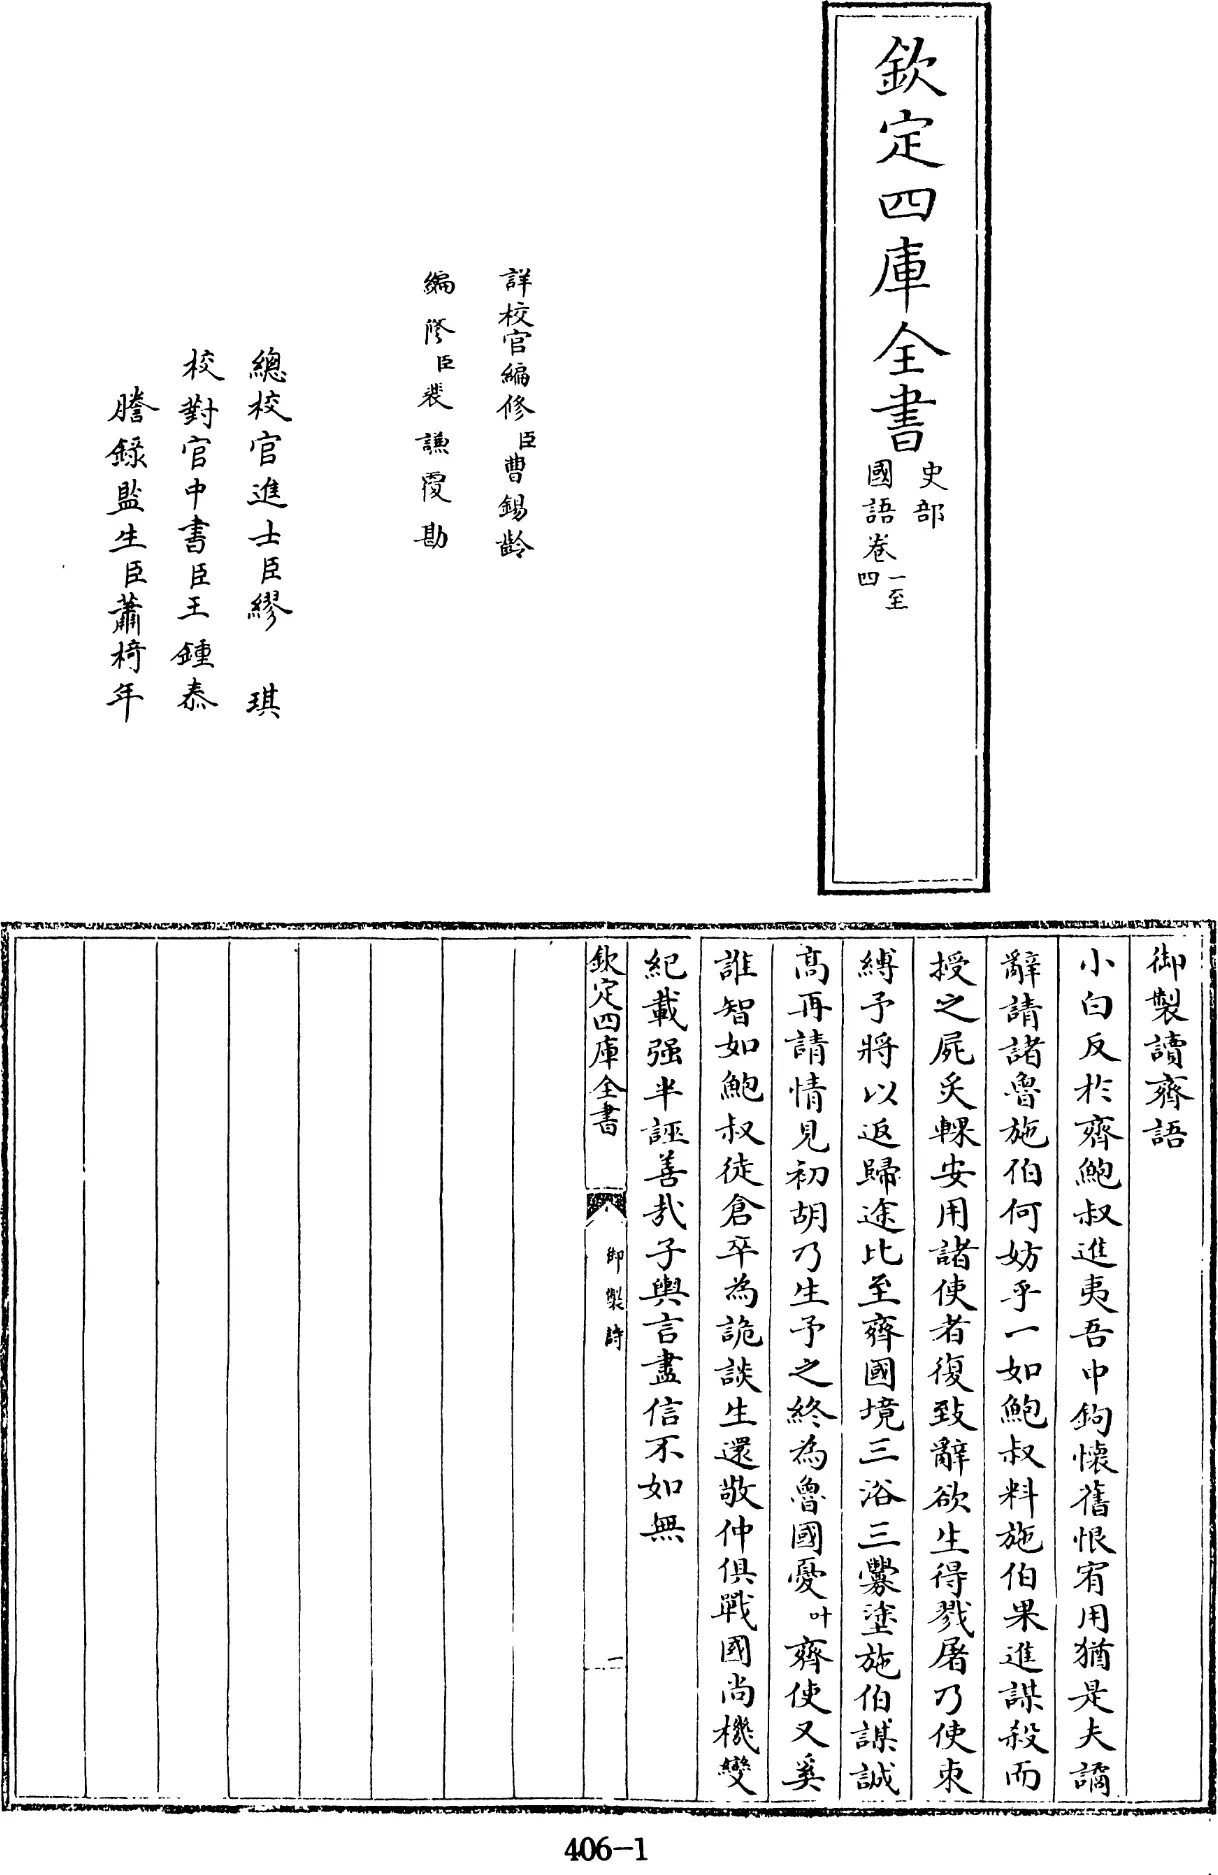 欽定四庫全書
史部
國語卷一至四
詳校官編修臣曹錫齡
編修臣裴謙覆勘
總校官進士臣繆琪
校對官中書臣王鍾泰
謄錄監生臣蕭椅年
御製讀齊語
小白反於齊鮑叔進夷吾中鉤懷舊恨宥用猶是夫譎
辭請諸魯施伯何妨乎一如鮑叔料施伯果進謀殺而
授之屍炙輠安用諸使者復致辭欲生得戮屠乃使束
縛予將以返歸途比至齊國境三浴三釁塗施伯謀誠
髙再請情見初胡乃生予之終為魯國憂叶齊使又奚
誰智如鮑叔徒倉卒為詭談生還敬仲俱戰國尚機變
紀載强半誣善哉子輿言盡信不如無
欽定四庫全書
御製詩
一
406-1